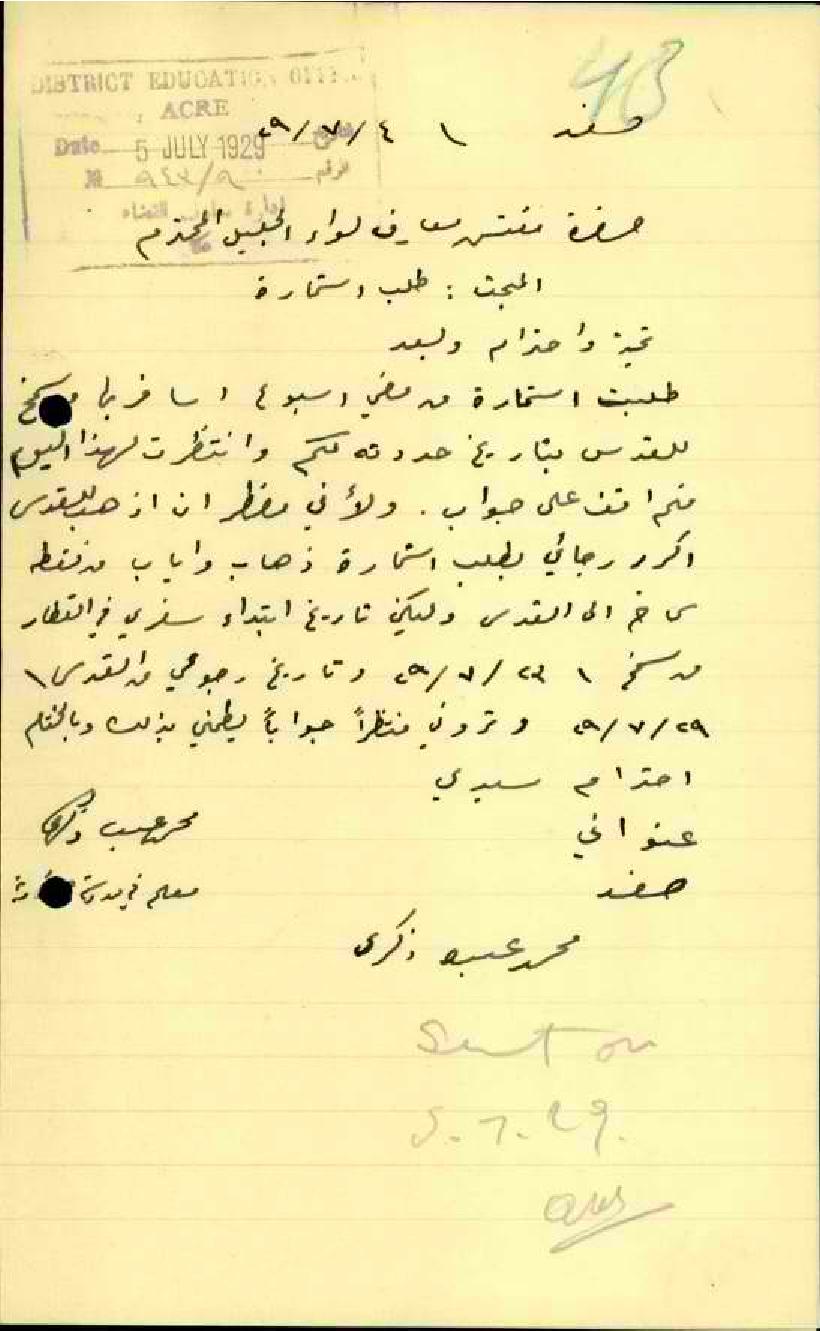 43
DISTRICT EDUCATION OFFICE
ACRE
Date 5 JULY 1929
№ ٩٤٣/٩٠ الرقم
صفد ١ ٤/٧/٢٩
حضرة مفتش معارف لواء الجليل المحترم
المبحث : طلب استمارة
تحية واحترام وبعد
طلبت استمارة من مضي اسبوع اسافر بها من سمخ
للقدس بتاريخ حددته لكم وانتظرت لهذا اليوم
فلم اقف على جواب . ولأني مضطر ان اذهب للقدس
اكرر رجائي بطلب استمارة ذهاب واياب من نقطه
سمخ الى القدس وليكن تاريخ ابتداء سفري في القطار
من سمخ ١ /٧/٢٩ وتاريخ رجوعي من القدس ١
٢٩/٧/٢٩ وتروني منتظراً جواباً يطمني بذلك وبالختام
احترام سيدي
عنواني محمد عبده ذكرى
صفد معلم في مدرسة
محمد عبده ذكرى
Sent on
5.7.29.